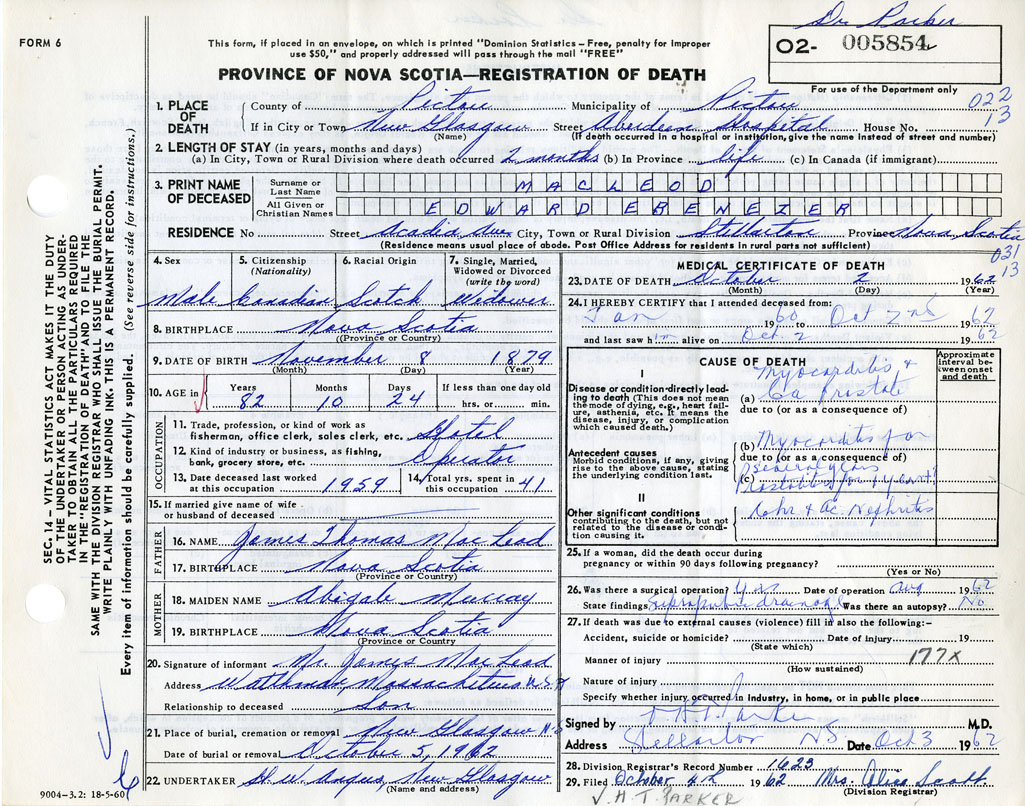 Dr Parker
FORM 6
This form, if placed in an envelope, on which is printed "Dominion Statistics – Free, penalty for Improper use $50," and properly addressed will pass through the mail "FREE"
02- 005854
PROVINCE OF NOVA SCOTIA—REGISTRATION OF DEATH
For use of the Department only
022
13
1. PLACE OF DEATH
County of Pictou Municipality of Pictou
If in City or Town New Glasgow Street Aberdeen Hospital House No.
(Name) (If death occurred in a hospital or institution, give the name instead of street and number)
2. LENGTH OF STAY (in years, months and days)
(a) In City, Town or Rural Division where death occurred 2 months (b) In Province life (c) In Canada (if immigrant)
3. PRINT NAME OF DECEASED
Surname or Last Name MACLEOD
All Given or Christian Names EDWARD EBENEZER
RESIDENCE No Street Acadia Ave City, Town or Rural Division Stellarton Province Nova Scotia
(Residence means usual place of abode. Post Office Address for residents in rural parts not sufficient)
031
13
4. Sex Male
5. Citizenship (Nationality) Canadian
6. Racial Origin Scotch
7. Single, Married, Widowed or Divorced (write the word) Widower
8. BIRTHPLACE Nova Scotia
(Province or Country)
9. DATE OF BIRTH November 8 1879
(Month) (Day) (Year)
10. AGE in Years 82 Months 10 Days 24 If less than one day old hrs. or min.
OCCUPATION
11. Trade, profession, or kind of work as fisherman, office clerk, sales clerk, etc. Hotel
12. Kind of industry or business, as fishing, bank, grocery store, etc. Operator
13. Date deceased last worked at this occupation 1959 14. Total yrs. spent in this occupation 41
15. If married give name of wife or husband of deceased
FATHER
16. NAME James Thomas MacLeod
17. BIRTHPLACE Nova Scotia
(Province or Country)
MOTHER
18. MAIDEN NAME Abigale Murray
19. BIRTHPLACE Nova Scotia
(Province or Country)
20. Signature of informant Mr. James MacLeod
Address Massachetius U.S.A
Relationship to deceased Son
21. Place of burial, cremation or removal New Glasgow N-S
Date of burial or removal October 5, 1962
22. UNDERTAKER H. W. Angus, New Glasgow
(Name and address)
9004–3.2: 18-5-60
SEC. 14 – VITAL STATISTICS ACT MAKES IT THE DUTY OF THE UNDERTAKER OR PERSON ACTING AS UNDERTAKER TO OBTAIN ALL THE PARTICULARS REQUIRED IN THE "REGISTRATION OF DEATH" AND TO FILE THE SAME WITH THE DIVISION REGISTRAR WHO SHALL ISSUE THE BURIAL PERMIT.
WRITE PLAINLY WITH UNFADING INK—THIS IS A PERMANENT RECORD.
Every item of information should be carefully supplied. (See reverse side for instructions.)
MEDICAL CERTIFICATE OF DEATH
23. DATE OF DEATH October 2 1962
(Month) (Day) (Year)
24. I HEREBY CERTIFY that I attended deceased from:
Jan 1960 to Oct 2nd 1962
and last saw him alive on Oct. 2 1962
CAUSE OF DEATH
Approximate interval between onset and death
I
Disease or condition directly leading to death (This does not mean the mode of dying, e.g., heart failure, asthenia, etc. It means the disease, injury, or complication which caused death.)
(a) Myocarditis & Ca prostate
due to (or as a consequence of)
Antecedent causes
Morbid conditions, if any, giving rise to the above cause, stating the underlying condition last.
(b) Myocarditis for
due to (or as a consequence of)
several years
(c) Prostatitis for
II
Other significant conditions contributing to the death, but not related to the disease or condition causing it.
& Ac. Nephritis
25. If a woman, did the death occur during pregnancy or within 90 days following pregnancy?
(Yes or No)
26. Was there a surgical operation? Yes Date of operation Aug 1962
State findings Suprapubic drainage Was there an autopsy? No
27. If death was due to external causes (violence) fill in also the following:–
Accident, suicide or homicide? Date of injury 19
(State which)
177X
Manner of injury
(How sustained)
Nature of injury
Specify whether injury occurred in industry, in home, or in public place
Signed by J H T Parker M.D.
Address Stellarton NS Date Oct 3 1962
28. Division Registrar's Record Number 1623
29. Filed October 4th 1962 Mrs. Alice Scott
(Division Registrar)
J. H. T. PARKER